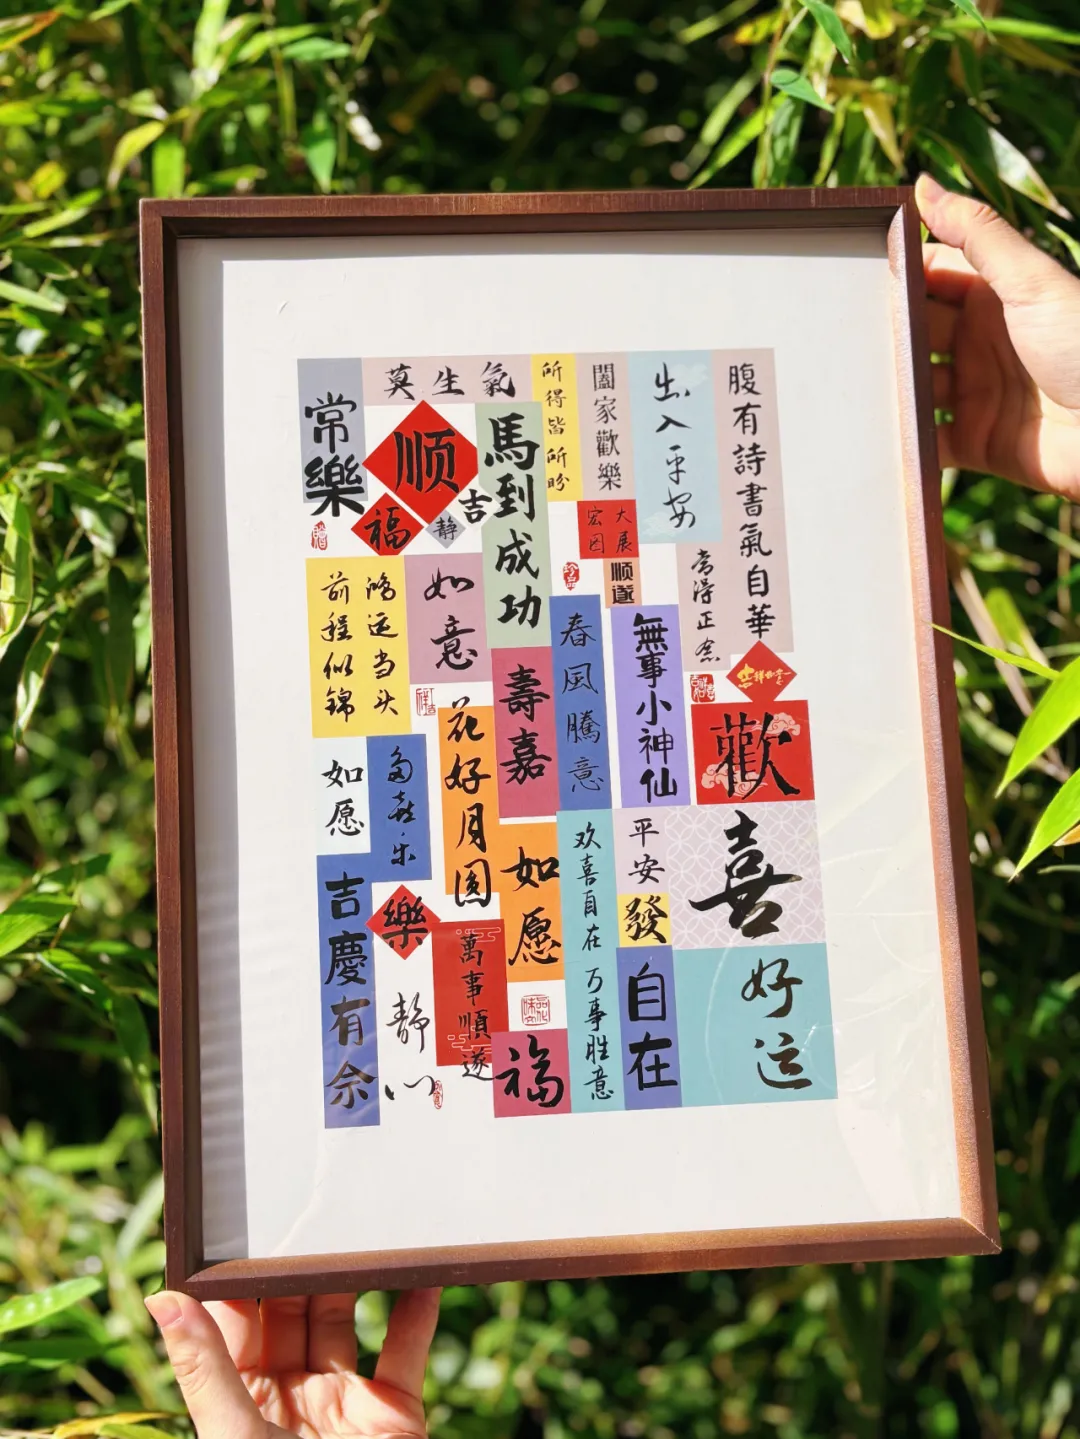 常樂
莫生氣
顺
福
靜
吉
馬到成功
所得皆所盼
闔家歡樂
出入平安
腹有詩書氣自華
常得正念
大展
宏图
顺遂
鸿运当头
前程似锦
如意
壽嘉
春風騰意
無事小神仙
歡
喜
如愿
多喜乐
花好月圆
如愿
欢喜自在 万事胜意
平安
發
自在
好运
吉慶有余
樂
靜心
萬事順遂
福